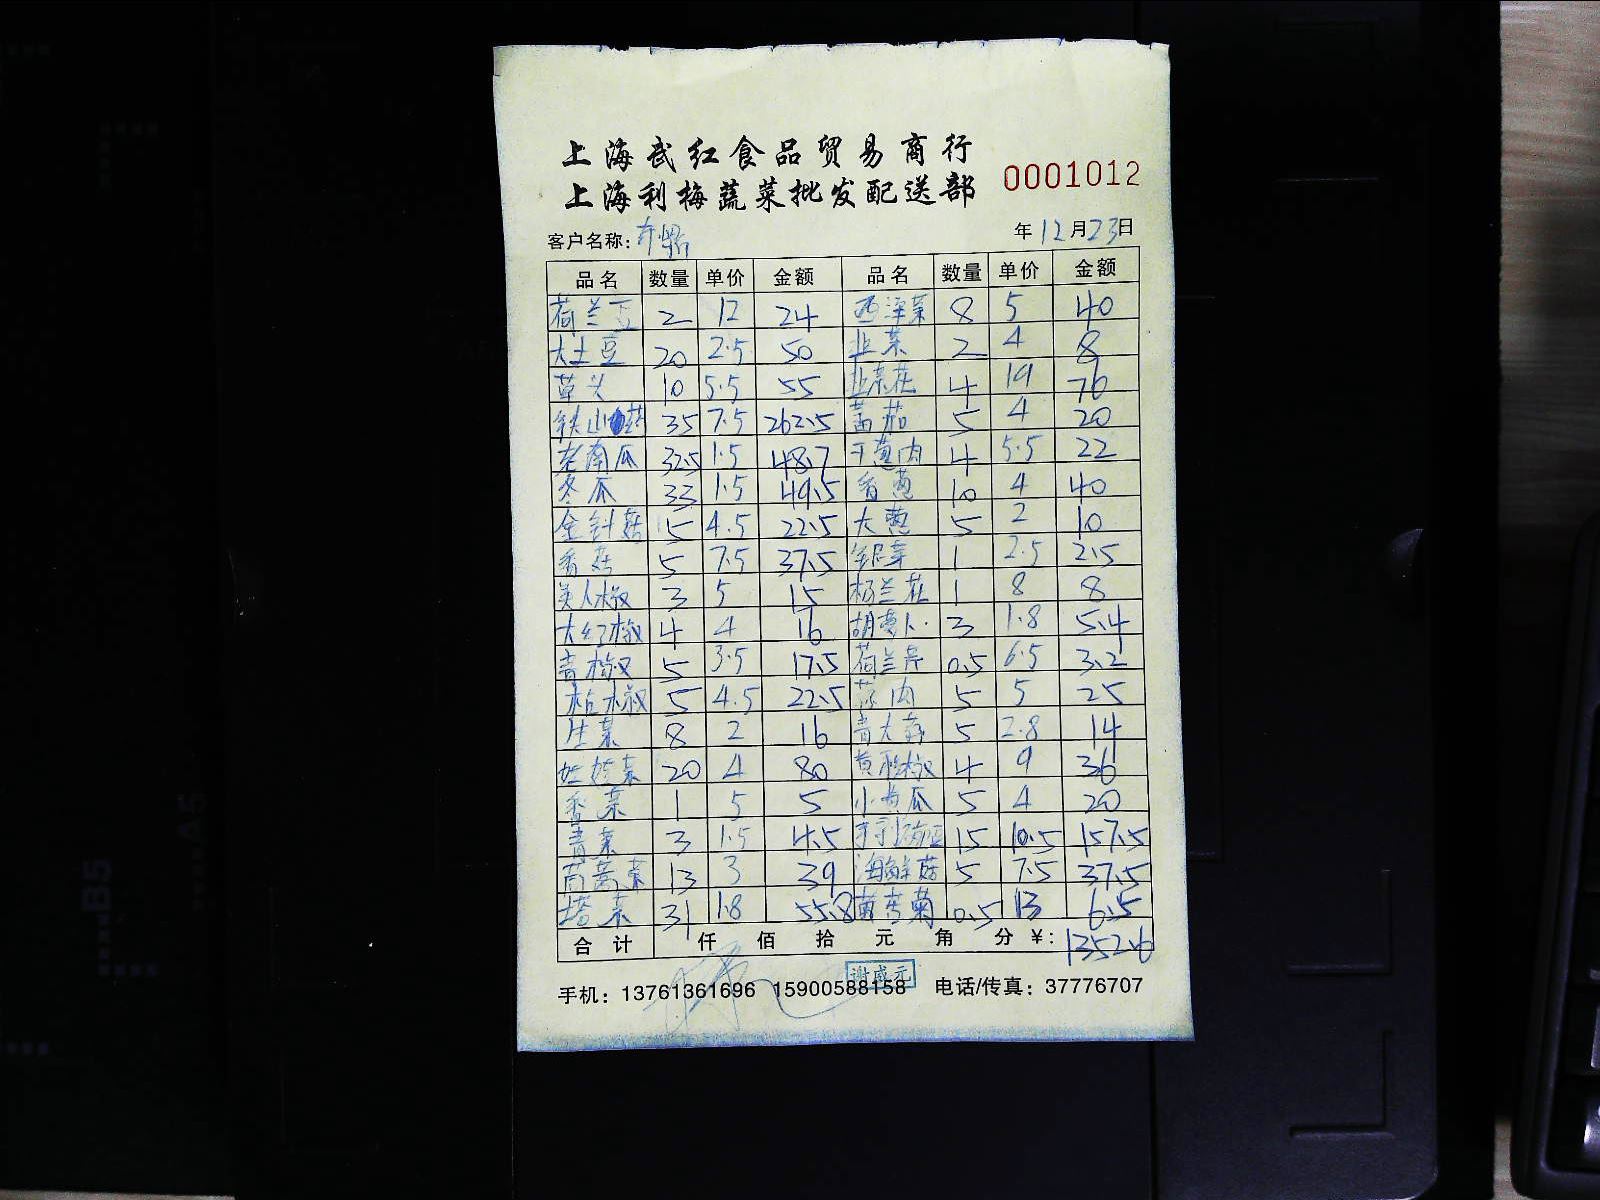 上海武红食品贸易商行
上海利梅蔬菜批发配送部
0001012
客户名称: 年12月23日
品名 数量 单价 金额 品名 数量 单价 金额
荷兰豆 2 12 24 西洋菜 8 5 40
大土豆 20 2.5 50 韭菜 2 4 8
草头 10 5.5 55 韭菜花 4 19 76
铁山药 35 7.5 262.5 番茄 5 4 20
老南瓜 32.5 1.5 48.7 干葱肉 4 5.5 22
冬瓜 33 1.5 49.5 香葱 10 4 40
金针菇 5 4.5 22.5 大葱 5 2 10
香菇 5 7.5 37.5 银芽 1 2.5 2.5
美人椒 3 5 15 杨兰花 1 8 8
大红椒 4 4 16 胡萝卜 3 1.8 5.4
青椒 5 3.5 17.5 荷兰芹 0.5 6.5 3.2
杭椒 5 4.5 22.5 肉 5 5 25
生菜 8 2 16 青大蒜 5 2.8 14
娃娃菜 20 4 80 黄彩椒 4 9 36
香菜 1 5 5 小黄瓜 5 4 20
青菜 3 1.5 4.5 15 10.5 157.5
茼蒿菜 13 3 39 海鲜菇 5 7.5 37.5
塔菜 31 1.8 55.8 黄苦菊 0.5 13 6.5
合计 仟 佰 拾 元 角 分 ¥: 1352.6
谢盛元
手机: 13761361696 15900588158 电话/传真: 37776707